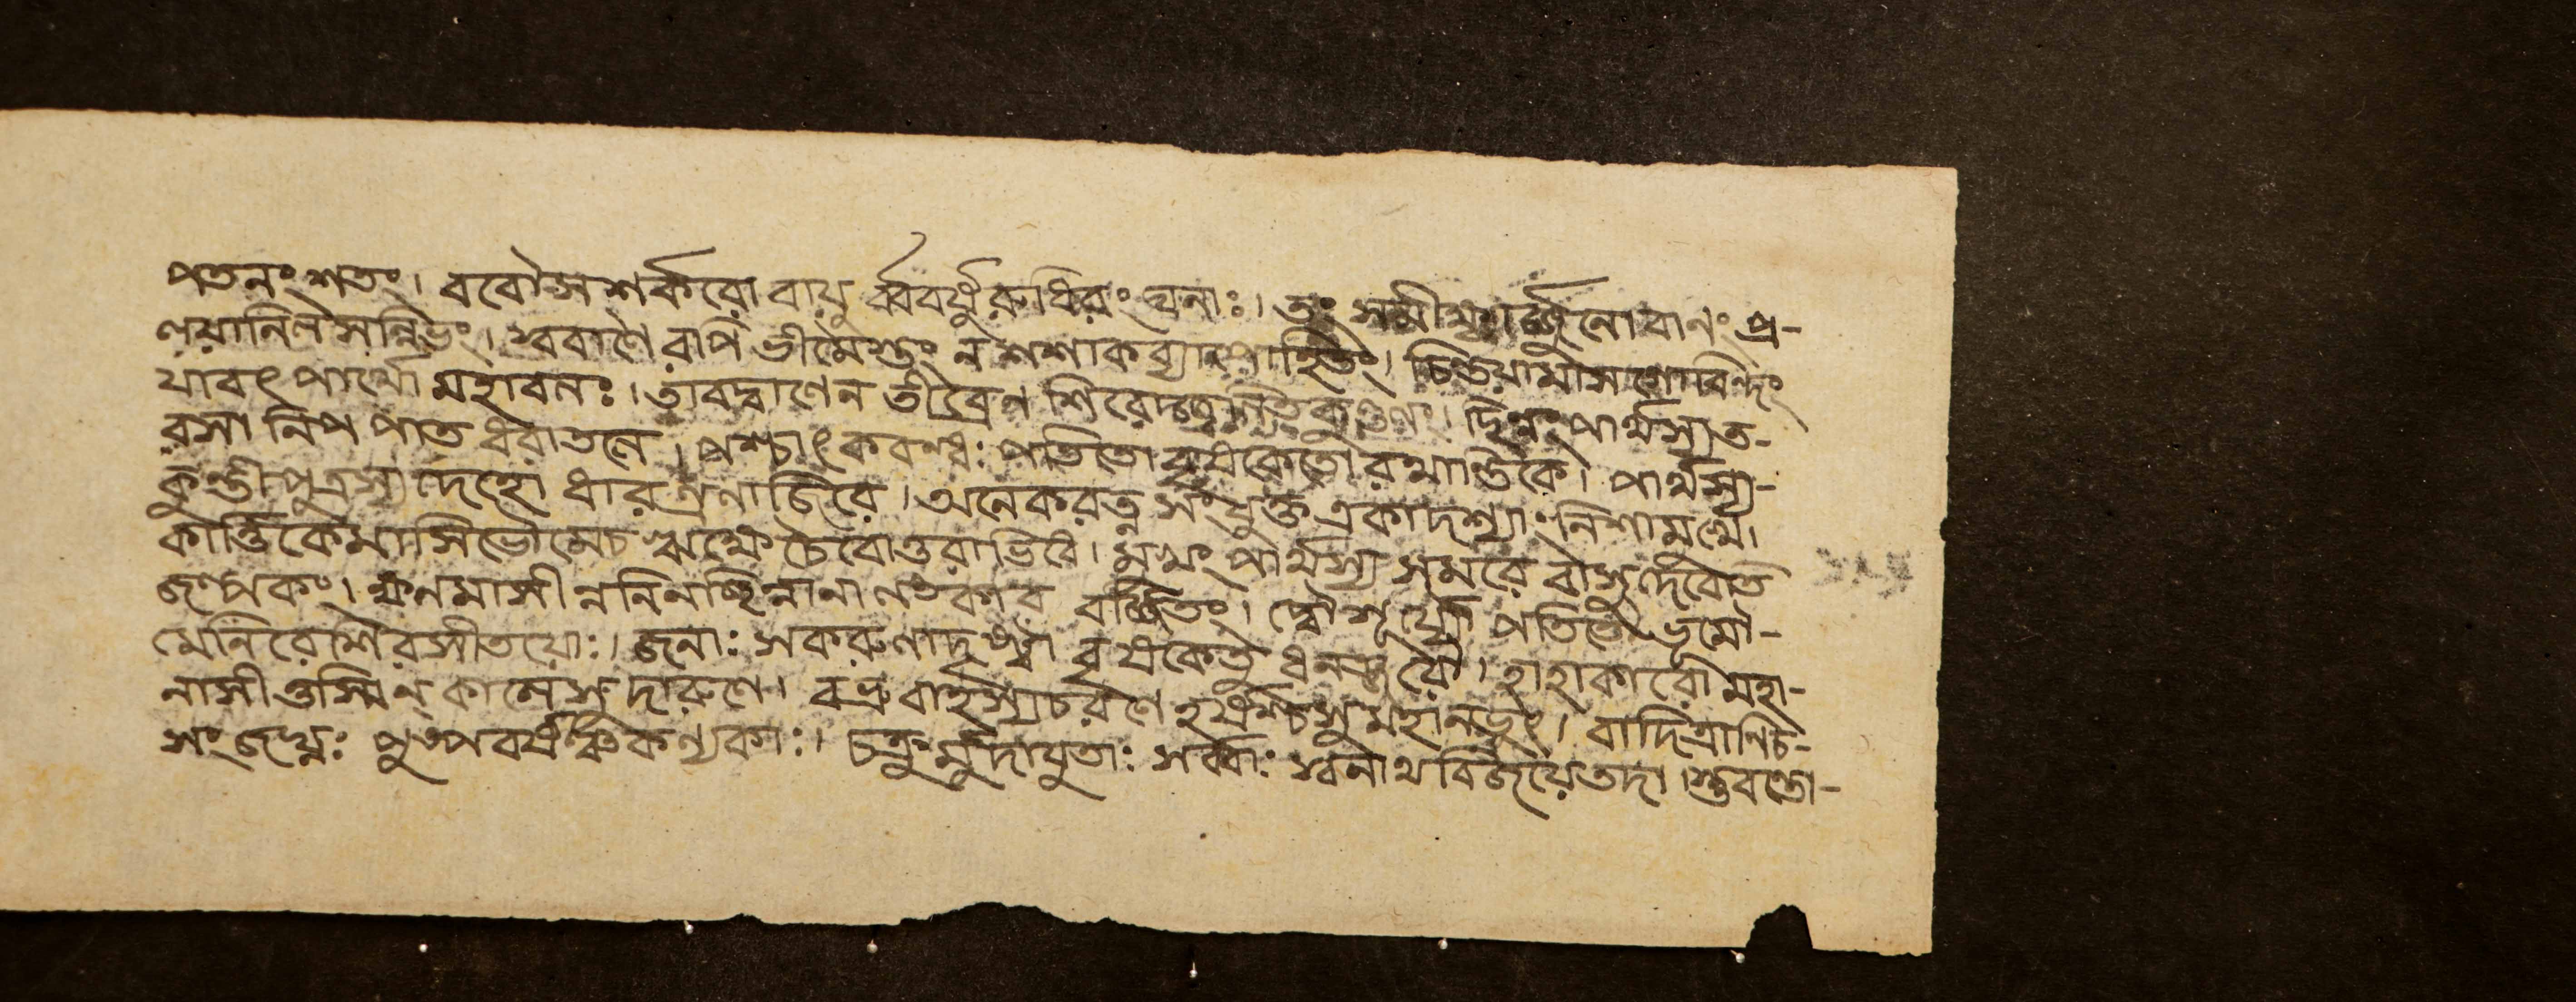 পতনং শতং। ববৌ সশর্করো বায়ু র্ব্ববর্ষুরুধিরং ঘনাঃ। তং সমীক্ষ্যার্জ্জুনো বাণং প্র-
লয়ানিলসন্নিভং। স্ববাণৈরপি ভীমৈস্তং ন শশাক ব্যপোহিতুং। চিন্তয়ামাস গোবিন্দং
যাবৎ পার্থো মহাবলঃ। তাবদ্বাণেন তীব্রেণ শিরো জ্বলিতকুণ্ডলং। ছিন্নং পার্থস্য ত-
রসা নিপপাত ধরাতলে। পশ্চাৎ কবন্ধঃ পতিতো বৃষকেতোরথান্তিকে। পার্থস্য-
কুন্তীপুত্রস্য দেহো ধার রনাজিরে। অনেকরত্ন সংযুক্ত একাদশ্যাং নিশামুখে।
কার্ত্তিকে মাসি ভৌমে চ ঋক্ষে চৈবোত্তরাভিধে। মুখং পার্থস্য সমরে বাসুদেবেতি
জল্পকং। ক্ষনমাসী ন্ননিনচ্ছিন্নানা লঙ্কার বর্জ্জিতং। দ্বৌ সূর্য্যৌ পতিতৌ ভূমৌ-
মেনিরে শিরসী তয়োঃ। জনাঃ সকরুণা দৃষ্ট্বা বৃষকেতু ধনঞ্জয়ৌ। হাহাকারো মহা-
নাসী ত্তস্মিন্ কালে সুদারুণে। বভ্রুবাহস্য চ রণে হর্ষশ্চ সুমহানভূৎ। বাদিত্রাণি চ-
সংজঘ্নুঃ পুষ্পবর্ষঞ্চ কন্যকাঃ। চক্রুর্ম্মুদাযুতাঃ সর্ব্বাঃ স্বনাথবিজয়ে তদা। স্তুবন্তো-